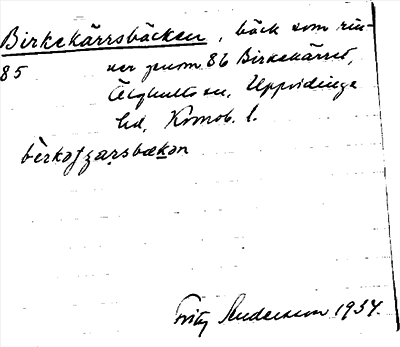 Birkekärrsbäcken, bäck som rin-
85 ner genom 86 Birkekärret,
Älghults sn, Uppvidinge
hd, Kronob. l.
bèrkəʃzarsbækən
Fritz Anderson 1934.